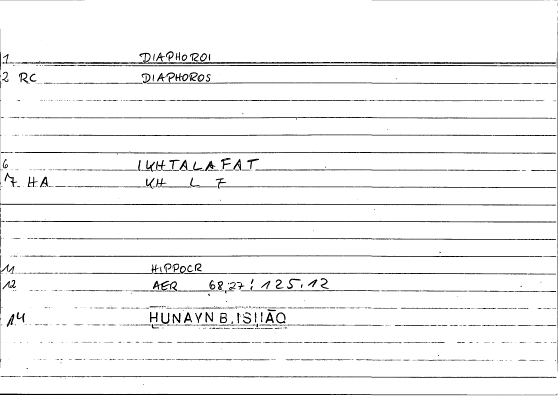 1 DIAPHOROI
2 RC DIAPHOROS
6 IKHTALAFAT
7 HA KH L F
11 HIPPOCR
12 AER 68,27 : 125,12
14 HUNAYN B. ISḤĀQ